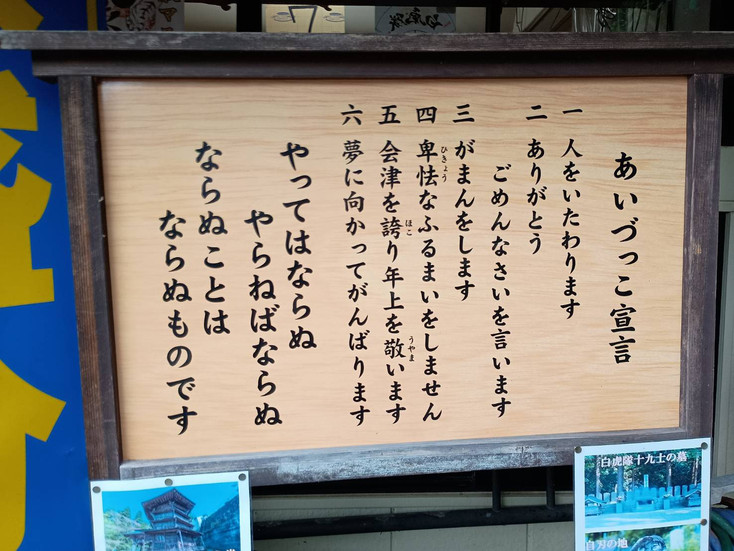 あいづっこ宣言
一 人をいたわります
二 ありがとう
ごめんなさいを言います
三 がまんをします
四 卑怯なふるまいをしません
ひきょう
五 会津を誇り年上を敬います
ほこ
うやま
六 夢に向かってがんばります
やってはならぬ
やらねばならぬ
ならぬことは
ならぬものです
白虎隊十九士の墓
自刃の地